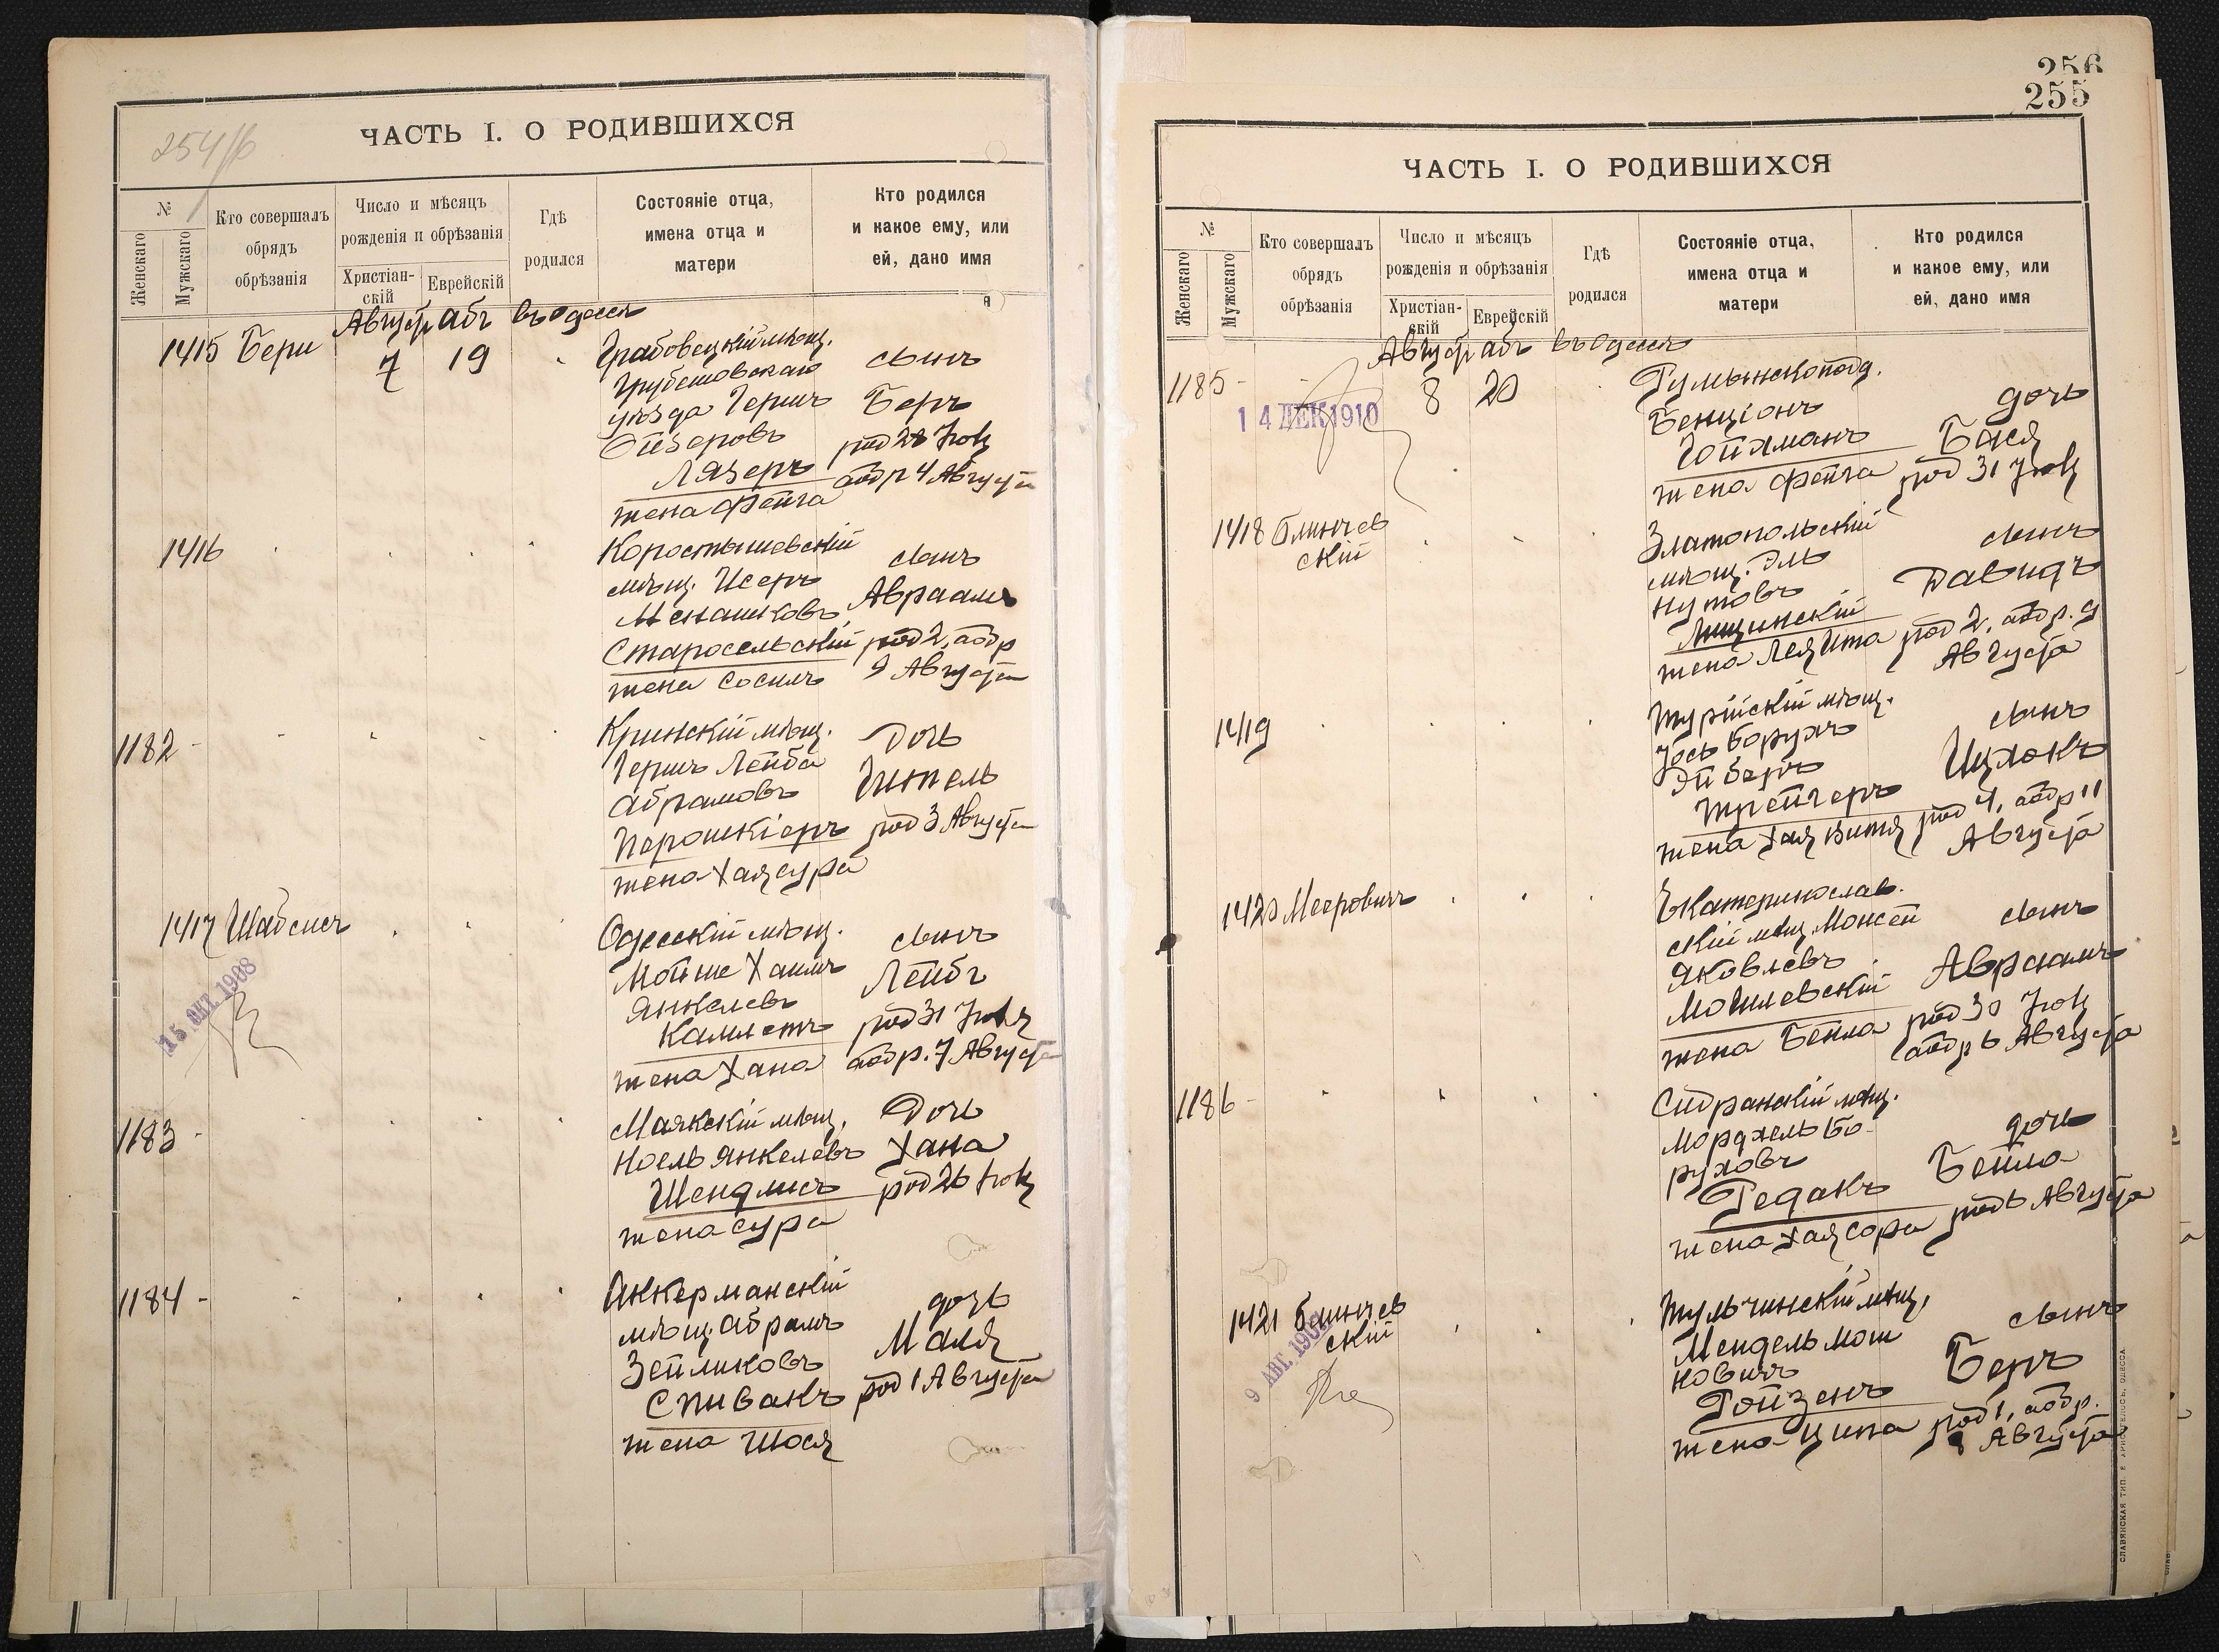 254/б
ЧАСТЬ I. О РОДИВШИХСЯ
№
Женскаго
Мужскаго
Кто совершалъ
обрядъ
обрѣзанія
Число и мѣсяцъ
рожденія и обрѣзанія
Христіан-
скій
Еврейскій
Гдѣ
родился
Состояніе отца,
имена отца и
матери
Кто родился
и какое ему, или
ей, дано имя
Августъ Абъ въ Одессѣ
1415 Бери 7 19
Грабовецкій мѣщ.
Грубешовскаго
уѣзда Гершъ
Лязеръ
жена Фейга
сынъ
Беръ
род 28 Июля
обр 4 Августа
1416
Коростышевскій
мѣщ. Исеръ
Менашковъ
Старосельскій
жена Сосиль
сынъ
Авраамъ
род 2, обр
9 Августа
1182
Кринскій мѣщ.
Гершъ Лейба
Абрамовъ
жена Хая Сура
Дочь
Гитель
род 3 Августа
1417 Шабсисъ
15 ОКТ. 1908
Одесскій мѣщ.
Мойше Хаимъ
Янкелевъ
Камлетъ
жена Хана
сынъ
Лейбъ
род 31 Июля
обр. 7 Августа
1183
Маякскій мѣщ.
Ноель Янкелевъ
Шендлисъ
жена Сура
Дочь
Хана
род 26 Июля
1184
Аккерманскій
мѣщ. Абрамъ
Зейликовъ
Спивакъ
жена Шося
дочь
Маля
род 1 Августа
256
255
ЧАСТЬ I. О РОДИВШИХСЯ
№
Женскаго
Мужскаго
Кто совершалъ
обрядъ
обрѣзанія
Число и мѣсяцъ
рожденія и обрѣзанія
Христіан-
скій
Еврейскій
Гдѣ
родился
Состояніе отца,
имена отца и
матери
Кто родился
и какое ему, или
ей, дано имя
Августъ Абъ въ Одессѣ
1185 8 20
14 ДЕК 1910
Румынскоподд.
Бенціонъ
Гойхманъ
жена Фейга
дочь
Бася
род 31 Июля
1418 Блинчев
скій
Златопольскій
мѣщ. Эль
Нутовъ
Лещинскій
жена Лея Ита
сынъ
Давидъ
род 2, обр. 9
Августа
1419
Турійскій мѣщ.
Іось Борухъ
Трейгеръ
жена Хая Витя
сынъ
Ицхокъ
род 4, обр 11
Августа
1420 Мееровичъ
Екатеринослав.
скій мѣщ. Моисей
Яковлевъ
Могилевскій
жена Бейла
сынъ
Авраамъ
род 30 Июля
обр 6 Августа
1186
мѣщ.
Мордхель Бо-
руховъ
Редакъ
жена Хая Сора
дочь
Бейла
род 6 Августа
1421 Блинчев
скій
9 АВГ. 190
Тульчинскій мѣщ.
Мендель Мош
ковичъ
Ройзенъ
жена Ципа
сынъ
Беръ
род 1, обр.
8 Августа
СЛАВЯНСКАЯ ТИП. Е. ХРИСОГЕЛОСЪ, ОДЕССА